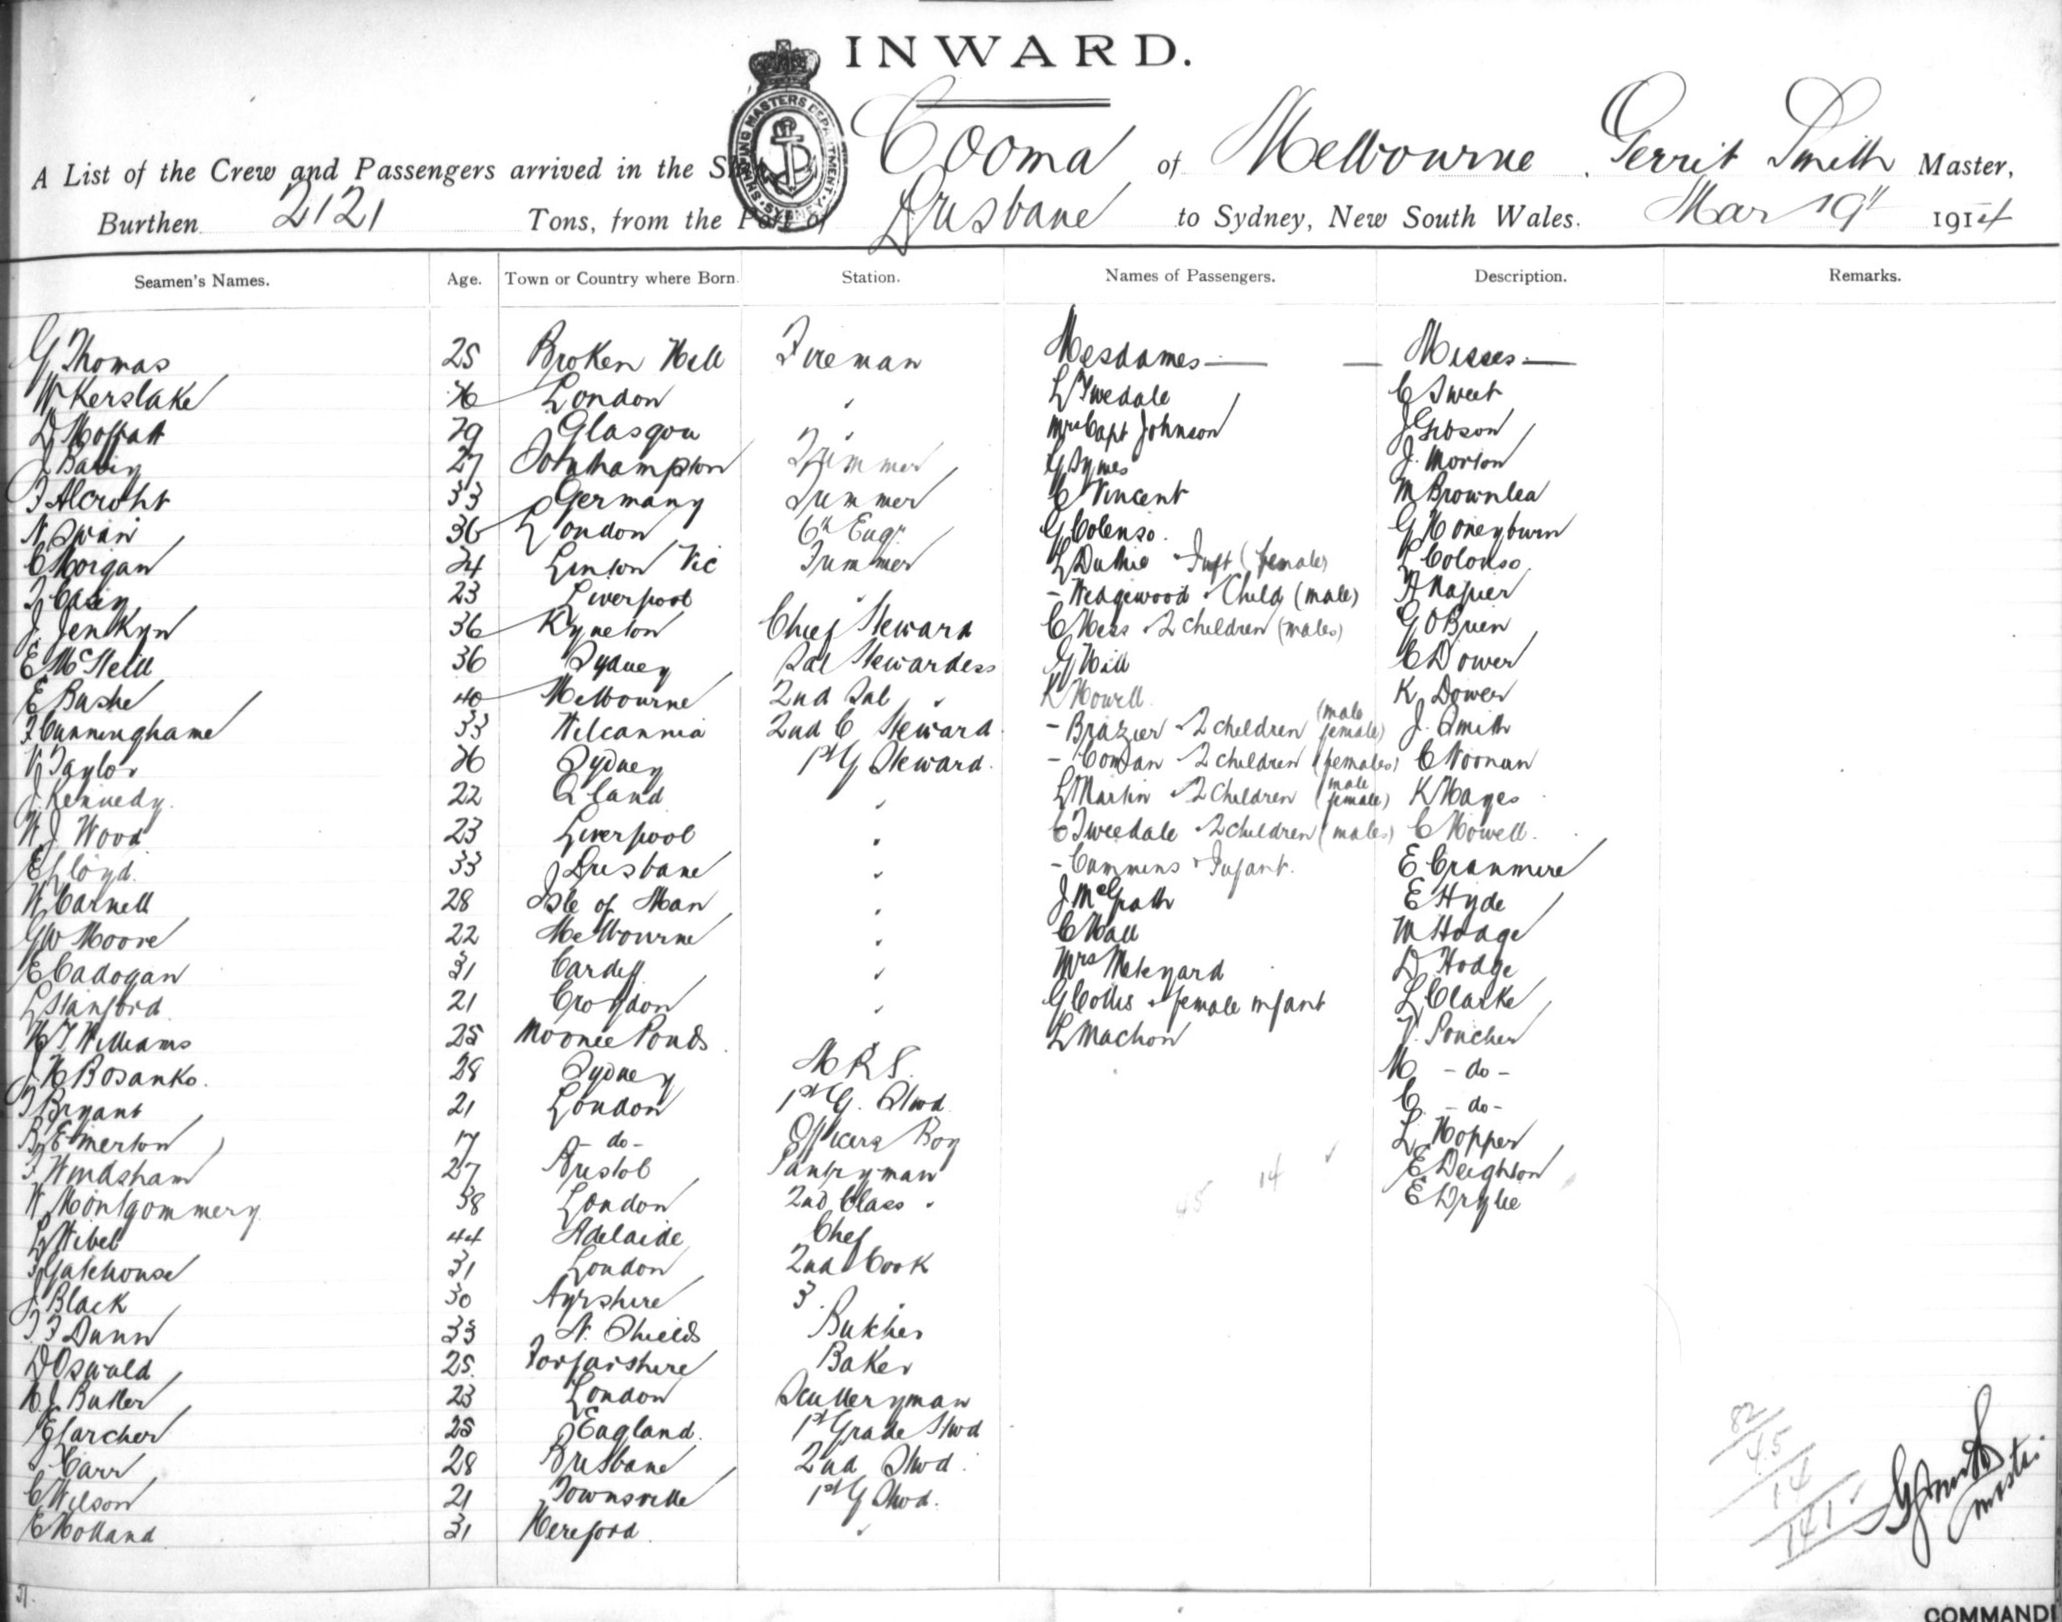 INWARD.
SHIPPING MASTERS DEPARTMENT SYDNEY
A List of the Crew and Passengers arrived in the Ship Cooma of Melbourne. Gerrit Smith Master,
Burthen 2121 Tons, from the Port of Brisbane to Sydney, New South Wales. Mar 19th 1914
Seamen's Names. Age. Town or Country where Born. Station. Names of Passengers. Description. Remarks.
G Thomas 25 Broken Hill Fireman Mesdames — — Misses —
W Kerslake 36 London " L Twedale C Sweet
D Moffatt 29 Glasgow " Mrs Capt Johnson J Gibson
J 27 Southampton Trimmer G Symes J. Morton
33 Germany Trimmer C Vincent M Brownlea
N Swain 36 London 6th Engr G Colenso. G Honeyburn
C Morgan 24 Linton Vic Trimmer L Duthie & Inft (female) L Colonso
T Casey 23 Liverpool " - Wedgewood & Child (male) A Napier
J. Jenkyn 36 Kyneton Chief Steward C Hess & 2 children (males) G O Brien
E McNeill 36 Sydney Sal Stewardess G Hill C Dower
E Bashe 40 Melbourne 2nd Sal " K Howell K Dower
F Cunninghame 33 Wilcannia 2nd C Steward. - Brazier & 2 children (male female) J. Smith
V Taylor 26 Sydney 1st G Steward. - Conlan & 2 children (females) C Noonan
J. Kennedy. 22 Qland " L Martin & 2 children (male female) K Hayes
W. J. Wood 23 Liverpool " C Tweedale & 2 children (males) C Howell.
E Lloyd. 33 Brisbane " - Cummins & Infant. E Cranmere
W Carnell 28 Isle of Man " J McGrath E Hyde
G W Moore 22 Melbourne " C Hall M Hodge
E Cadogan 31 Cardiff " Mrs Meteyard D. Hodge
L Stanford 21 Croydon " G Collis & female infant L Clarke
H T Williams 25 Moonee Ponds " L Machon V. Poucher
J. H Bosanko. 28 Sydney M R S. M - do -
T Bryant 21 London 1st G. Stwd. C. - do -
B Emerton 17 - do - Officers Boy L Hopper
F Windsham 27 Bristol Pantryman 14 E Deighton
W Montgommery 38 London 2nd Class " 45 E Dryhe
L Wibel 44 Adelaide Chef
F Gatehouse 31 London 2nd Cook
J. Black 30 Ayrshire 3 "
T. F Dunn 33 N. Shields Butcher
D Oswald 25. Forfarshire Baker
H. J. Butler 23 London Sculleryman
E Larcher 25 England. 1st Grade Stwd
J. Carr 28 Brisbane 2nd Stwd.
C Wilson 21 Townsville 1st G Stwd.
E Holland 31 Hereford "
82
45
14
141
G Smith
master
COMMANDI